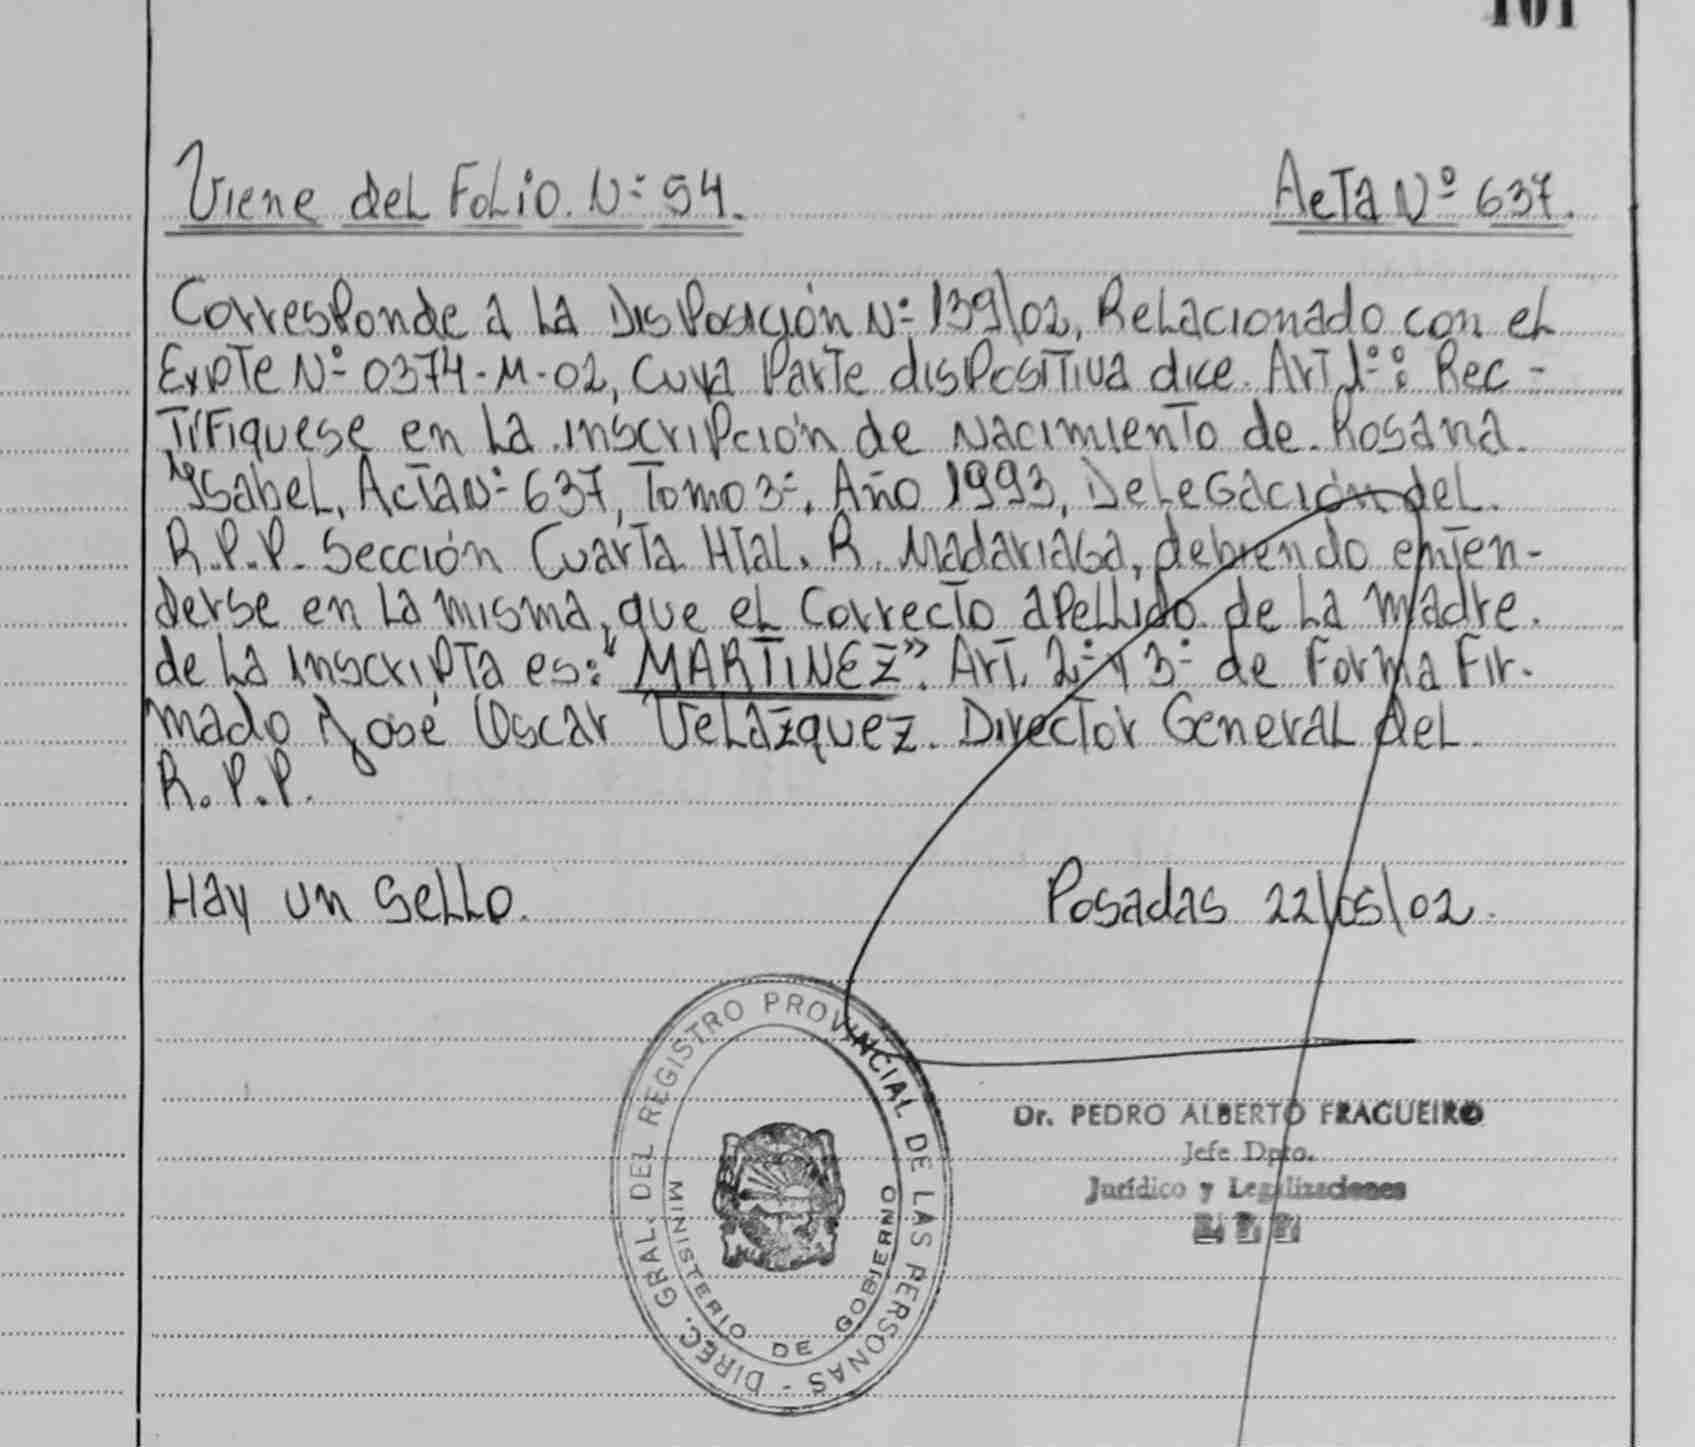 101
Viene del Folio. Nº 54. Acta Nº 637.
Corresponde a la Disposición Nº 139/02, Relacionado con el
Expte Nº 0374-M-02, Cuya Parte dispositiva dice. Art 1º: Rec-
tifíquese en la inscripción de Nacimiento de Rosana
Ysabel, Acta Nº 637, Tomo 3º, Año 1993, Delegación del
R.P.P. Sección Cuarta Htal. R. Madariaga, debiendo enten-
derse en la misma, que el Correcto apellido de la madre
de la inscripta es: "MARTINEZ". Art. 2º y 3º de Forma Fir-
mado José Oscar Velázquez. Director General del
R.P.P.
Hay un Sello. Posadas 22/05/02.
DIREC. GRAL. DEL REGISTRO PROVINCIAL DE LAS PERSONAS -
MINISTERIO DE GOBIERNO
Dr. PEDRO ALBERTO FRAGUEIRO
Jefe Dpto.
Jurídico y Legalizaciones
R. P. P.